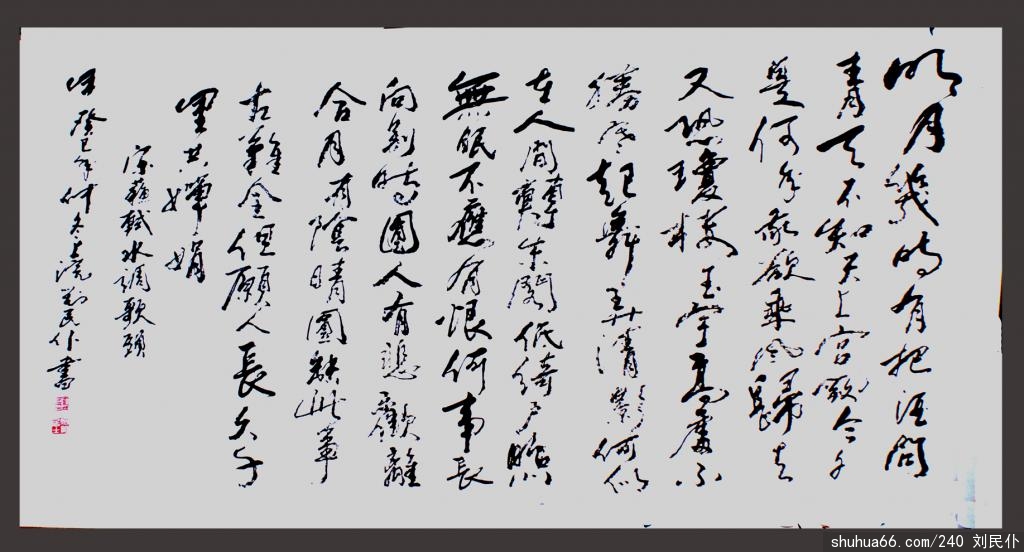 明月幾時有把酒問
青天不知天上宮闕今夕
是何年我欲乘風歸去
又恐瓊樓玉宇高處不
勝寒起舞弄清影何似
在人間轉朱閣低綺戶照
無眠不應有恨何事長
向別時圓人有悲歡離
合月有陰晴圓缺此事
古難全但願人長久千
里共嬋娟
宋蘇軾水調歌頭
癸巳年仲冬 劉民仆書
shuhua66.com/240 刘民仆